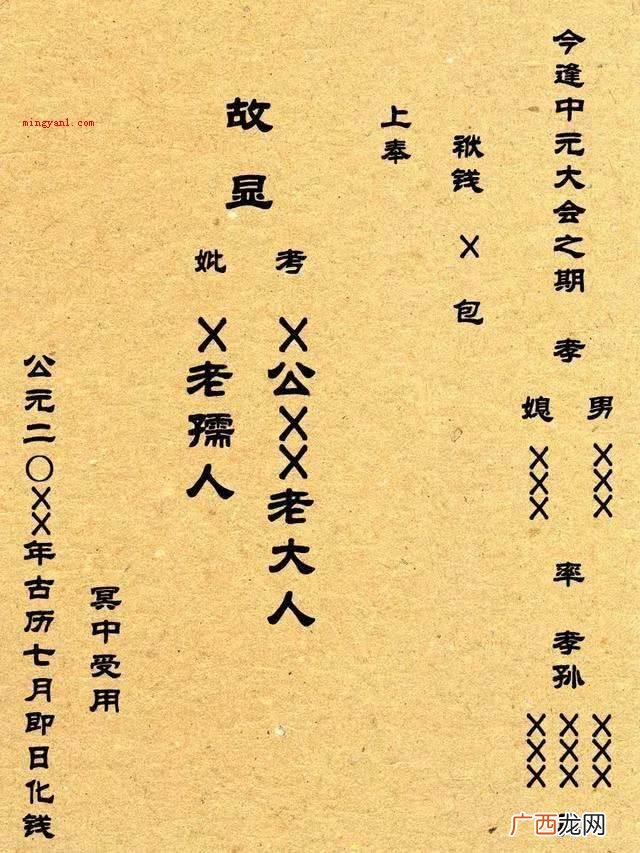 今逢中元大会之期 孝
男 XXX
媳 XXX
率 孝孙
XXX
XXX
XXX
袱钱 X 包
上奉
故 显
考 X公XX老大人
妣 X老孺人
冥中受用
公元二〇XX年古历七月即日化钱
mingyan1.com
广西龙网